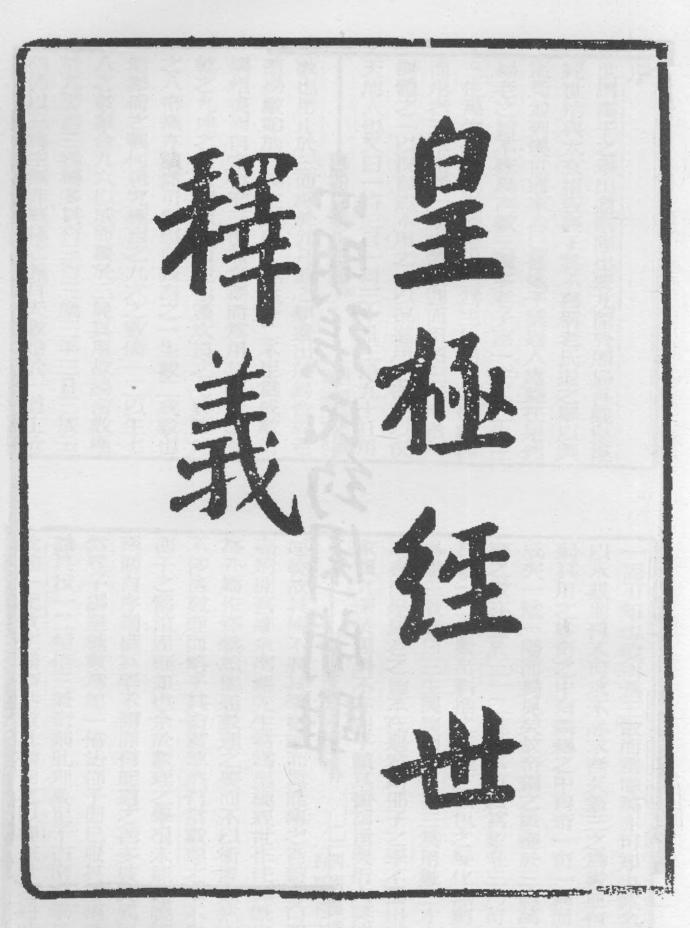 皇極經世
釋義